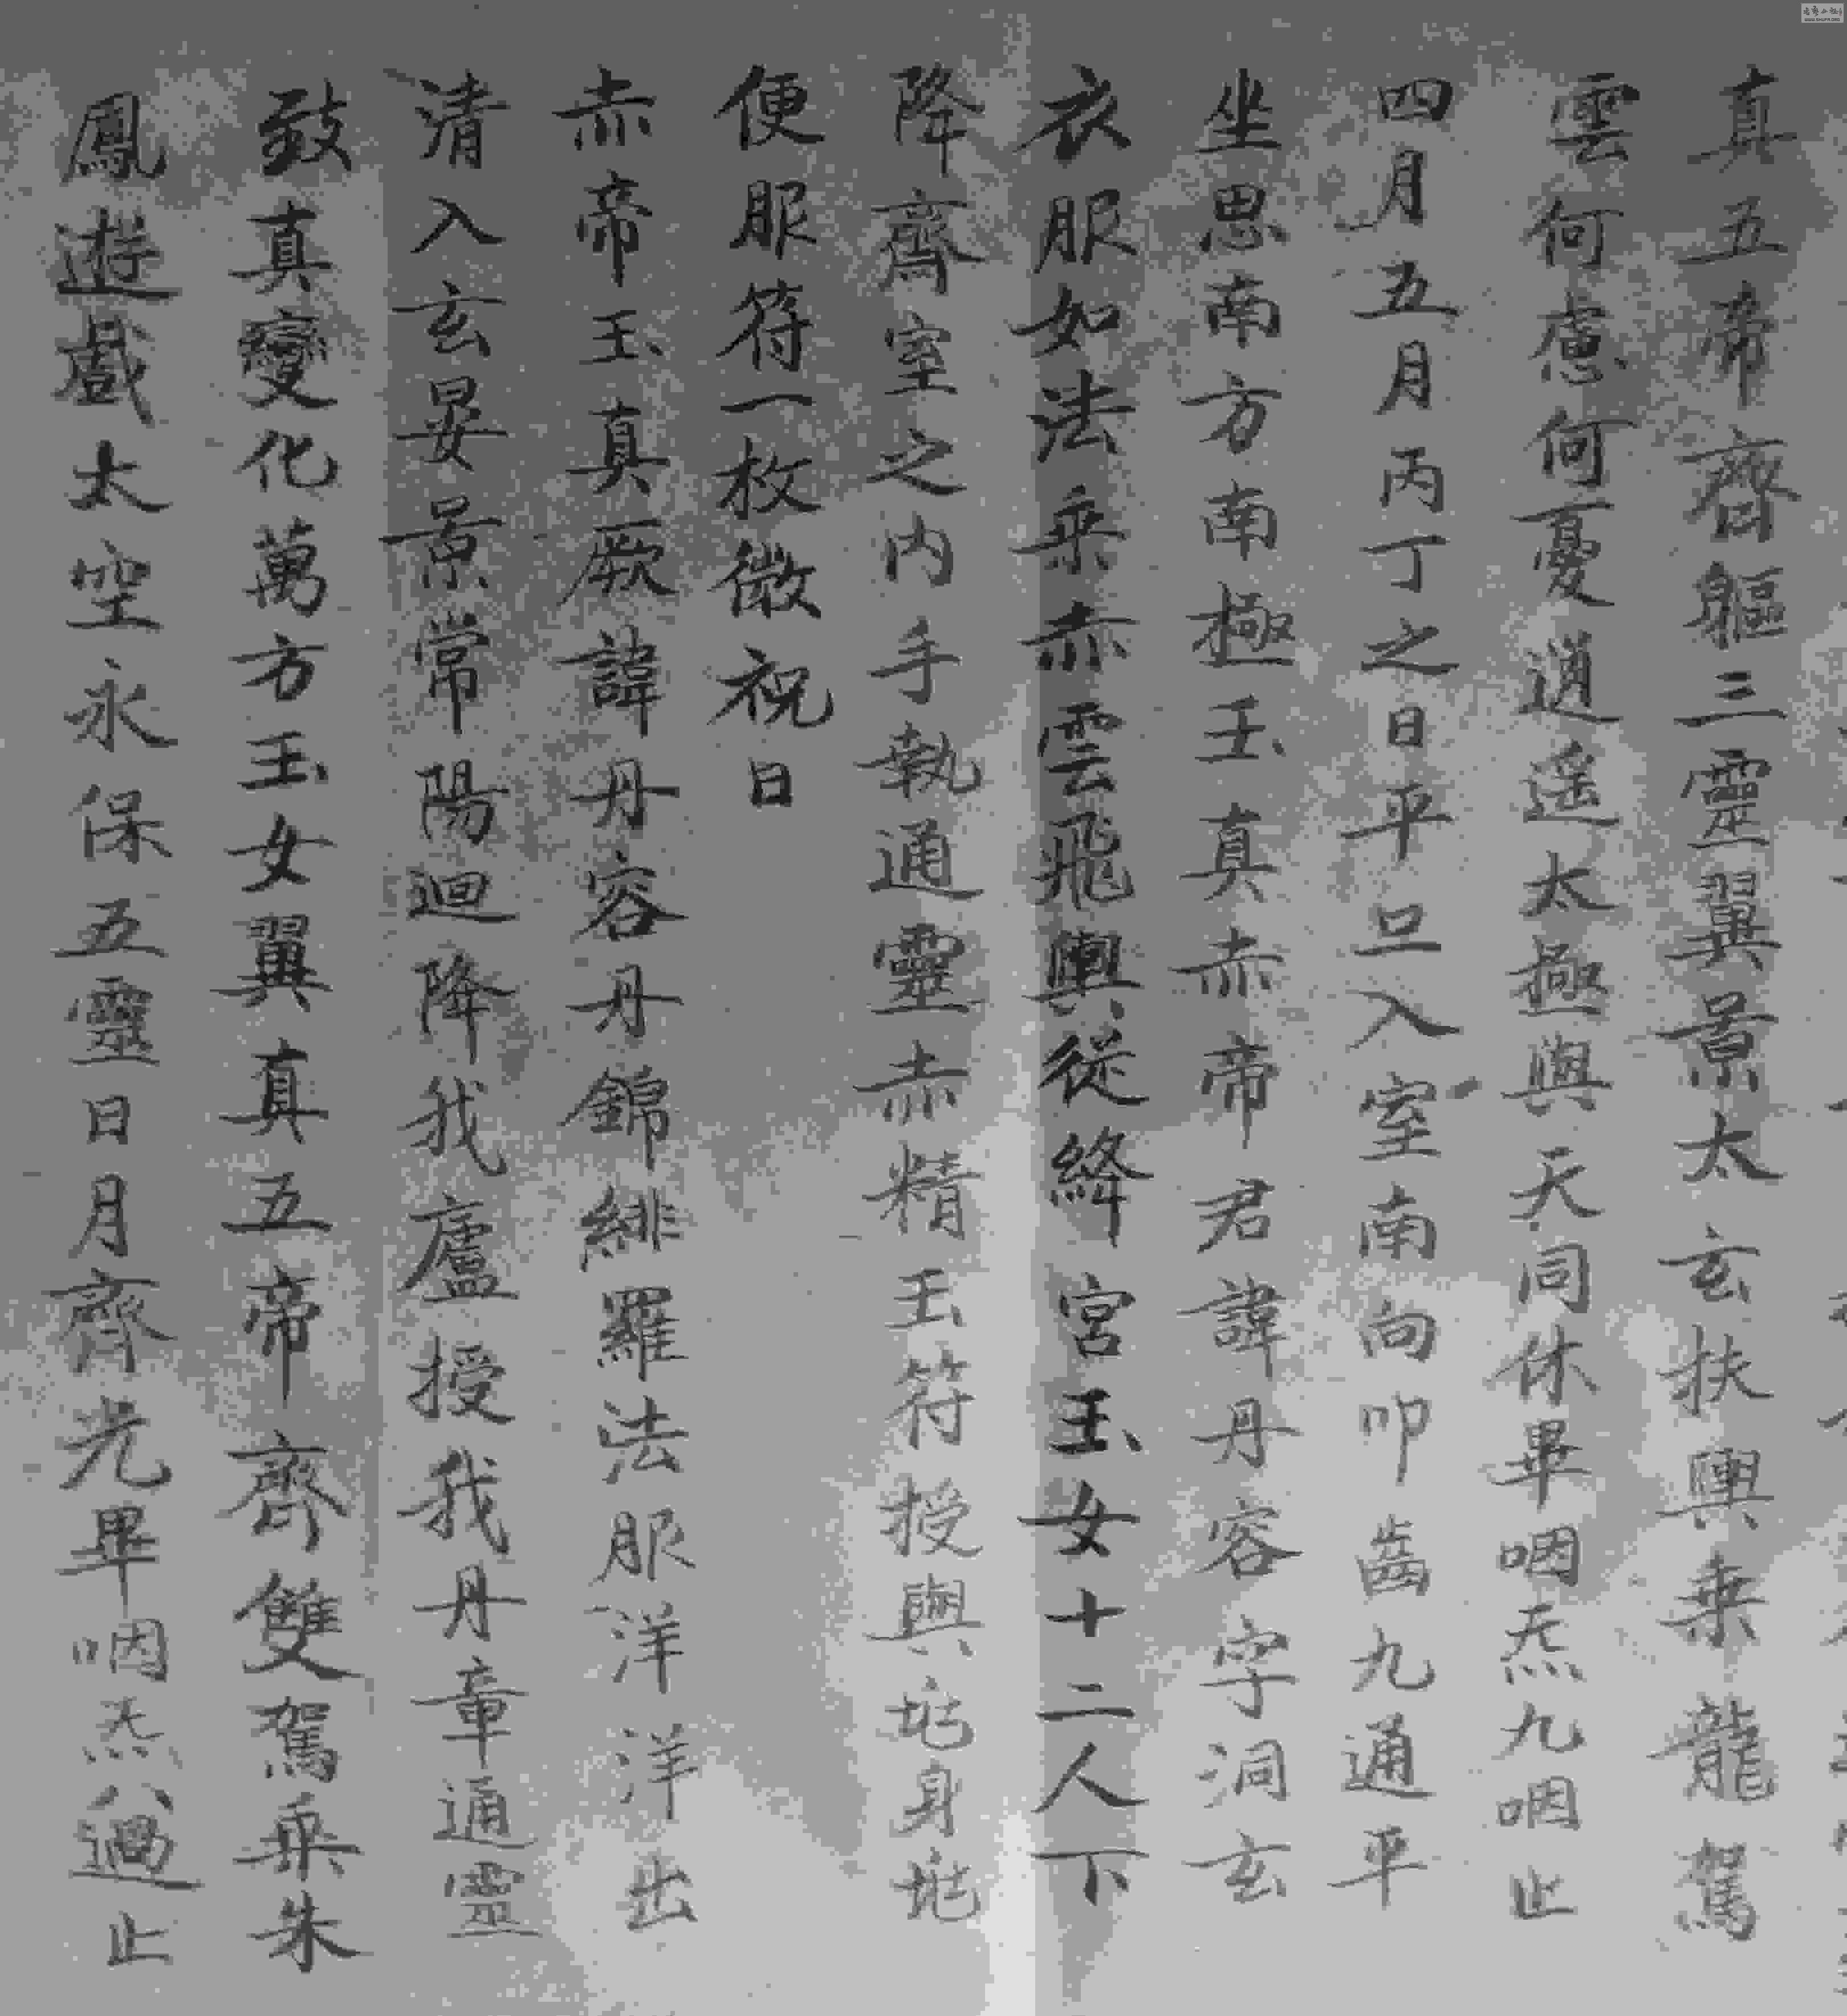 真五帝齊軀三靈翼景太玄扶輿乗龍駕
雲何慮何憂逍遥太極與天同休畢咽炁九咽止
四月五月丙丁之日平旦入室南向叩齒九通平
坐思南方南極玉真赤帝君諱丹容字洞玄
衣服如法乗赤雲飛輿從絳宮玉女十二人下
降齋室之内手執通靈赤精玉符授與
便服符一枚微祝曰
赤帝玉真厥諱丹容丹錦緋羅法服洋洋出
清入玄晏景常陽迴降我廬授我丹章通靈
致真變化萬方玉女翼真五帝齊雙駕乗朱
鳳遊戲太空永保五靈日月齊光畢咽炁八過止